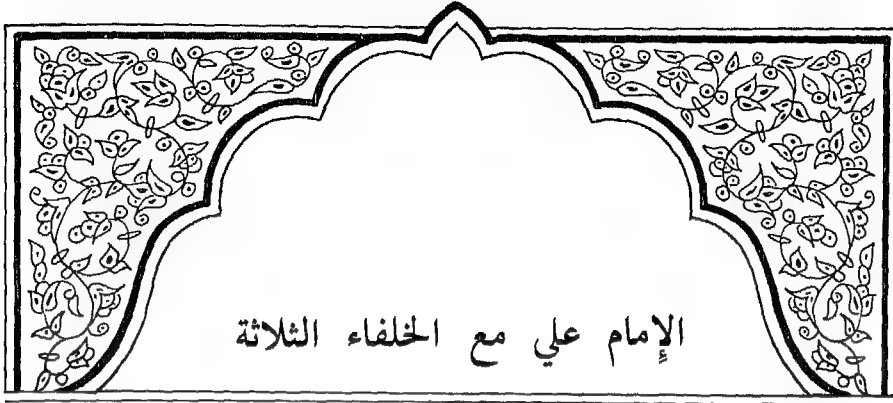 الإمام علي مع الخلفاء الثلاثة